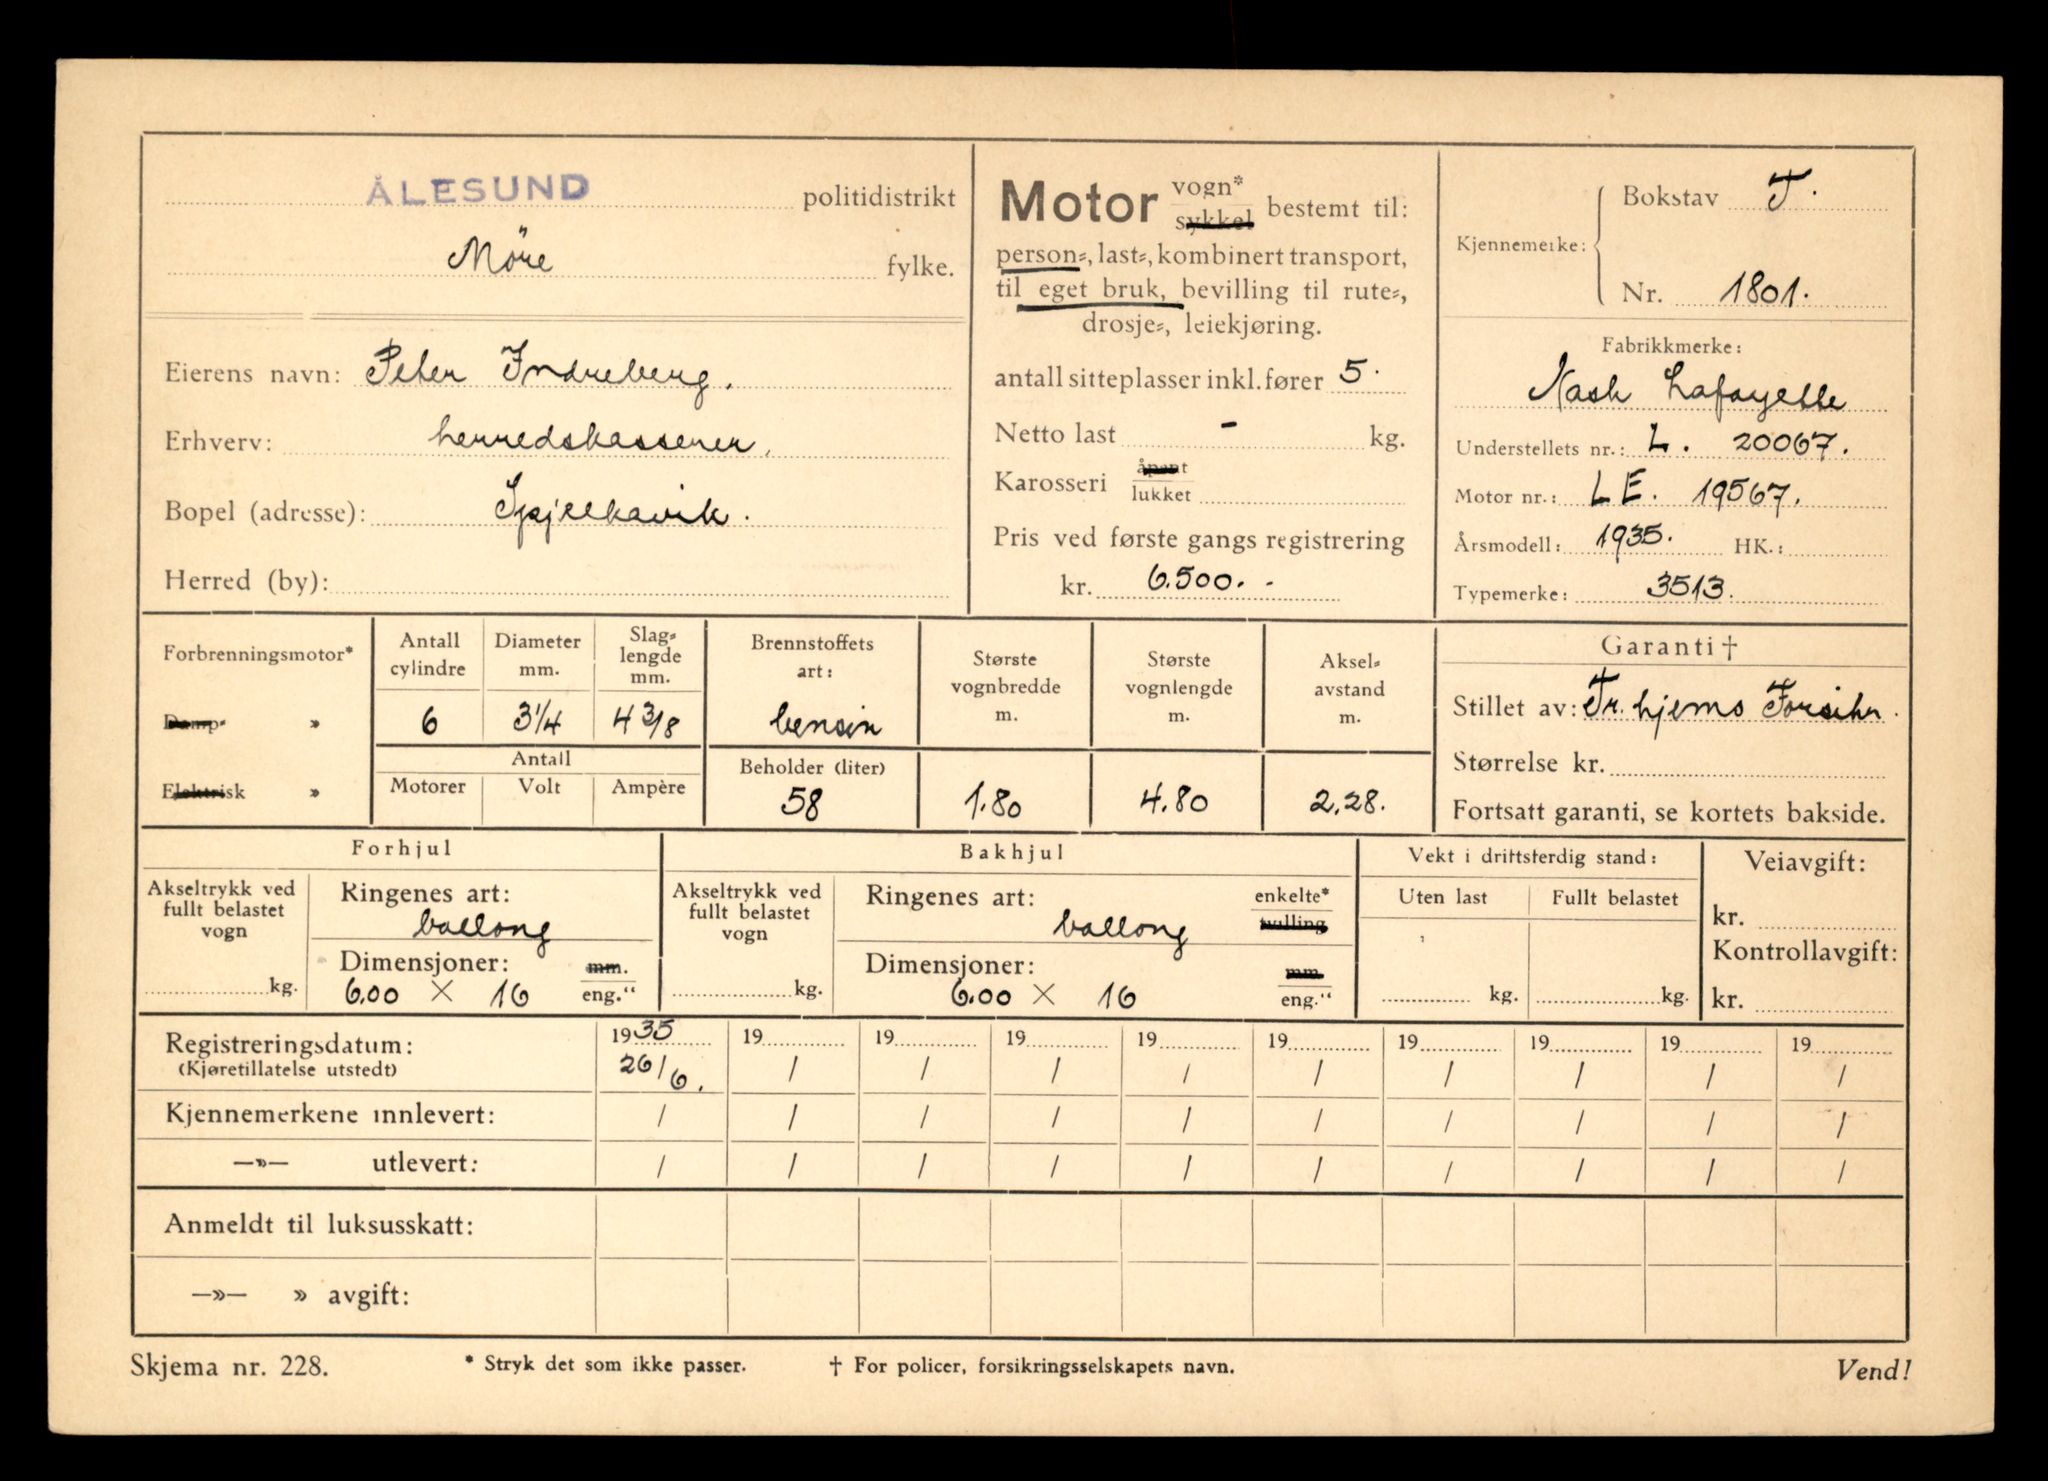 ÅLESUND politidistrikt
Möre fylke.
Eierens navn: Peter Indreberg.
Erhverv: herredskasserer,
Bopel (adresse): Spjelkavik.
Herred (by):
Motor vogn* sykkel bestemt til:
person-, last-, kombinert transport,
til eget bruk, bevilling til rute-,
drosje-, leiekjøring.
antall sitteplasser inkl. fører 5.
Netto last - kg.
Karosseri åpent lukket
Pris ved første gangs registrering
kr. 6.500.-
Kjennemerke: Bokstav T.
Nr. 1801.
Fabrikkmerke:
Nash Lafayette
Understellets nr.: L. 20067.
Motor nr.: LE. 19567.
Årsmodell: 1935. HK.:
Typemerke: 3513.
Forbrenningsmotor*
Damp- »
Elektrisk »
Antall cylindre
6
Diameter mm.
3 1/4
Slag-lengde mm.
4 3/8
Antall
Motorer Volt Ampère
Brennstoffets art:
bensin
Beholder (liter)
58
Største vognbredde m.
1.80
Største vognlengde m.
4.80
Aksel-avstand m.
2.28.
Garanti †
Stillet av: Tr.hjems Forsikr.
Størrelse kr.
Fortsatt garanti, se kortets bakside.
Forhjul
Akseltrykk ved fullt belastet vogn
kg.
Ringenes art:
ballong
Dimensjoner: mm.
6.00 × 16 eng."
Bakhjul
Akseltrykk ved fullt belastet vogn
kg.
Ringenes art: enkelte*
ballong tvilling
Dimensjoner: mm
6.00 × 16 eng."
Vekt i driftsferdig stand:
Uten last Fullt belastet
kg. kg.
Veiavgift:
kr.
Kontrollavgift:
kr.
Registreringsdatum: 1935 19 19 19 19 19 19 19 19 19
(Kjøretillatelse utstedt) 26/6. / / / / / / / / /
Kjennemerkene innlevert: / / / / / / / / / /
—»— utlevert: / / / / / / / / / /
Anmeldt til luksusskatt:
—»— » avgift:
Skjema nr. 228. * Stryk det som ikke passer. † For policer, forsikringsselskapets navn. Vend!